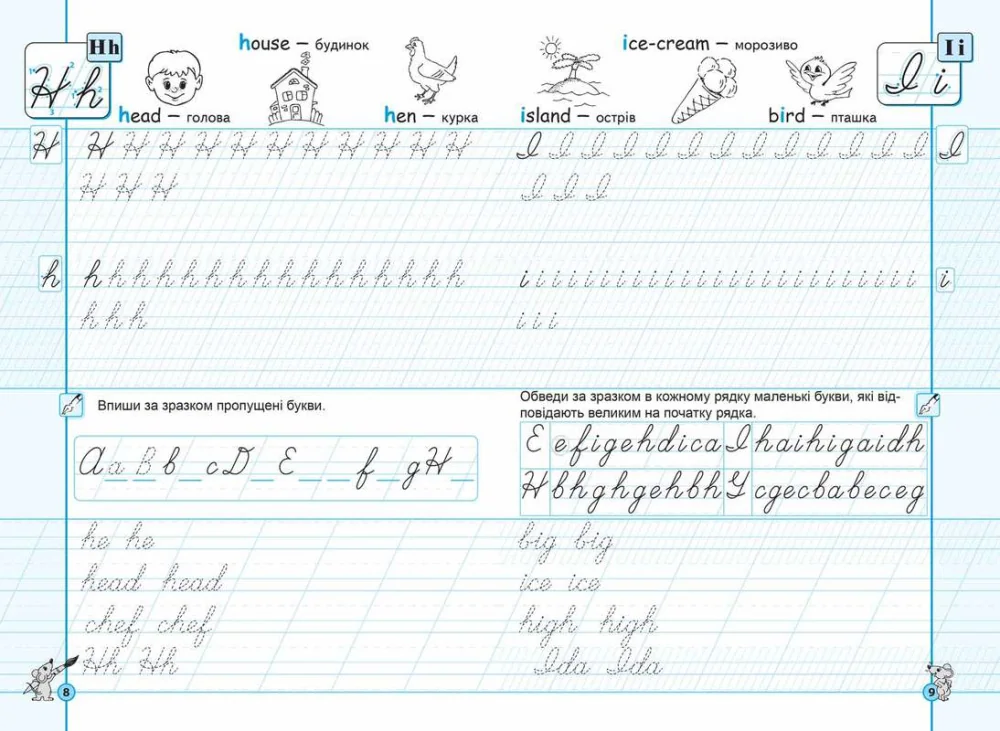 Hh
H h
house – будинок
head – голова
hen – курка
H H H H H H H H H H H H
H H H
h h h h h h h h h h h h h h h h h
h h h
Впиши за зразком пропущені букви.
A a B b _ c D _ E _ _ f _ g H _
he he
head head
chef chef
Hh Hh
8
Ii
I i
ice-cream – морозиво
island – острів
bird – пташка
I I I I I I I I I I I I I
I I I
i i i i i i i i i i i i i i i i i i i i i
i i i
Обведи за зразком в кожному рядку маленькі букви, які від-
повідають великим на початку рядка.
E e f i g e h d i c a I h a i h i g a i d h
H b h g h g e h b h G c g e c b a b e c e g
big big
ice ice
high high
Ida Ida
9